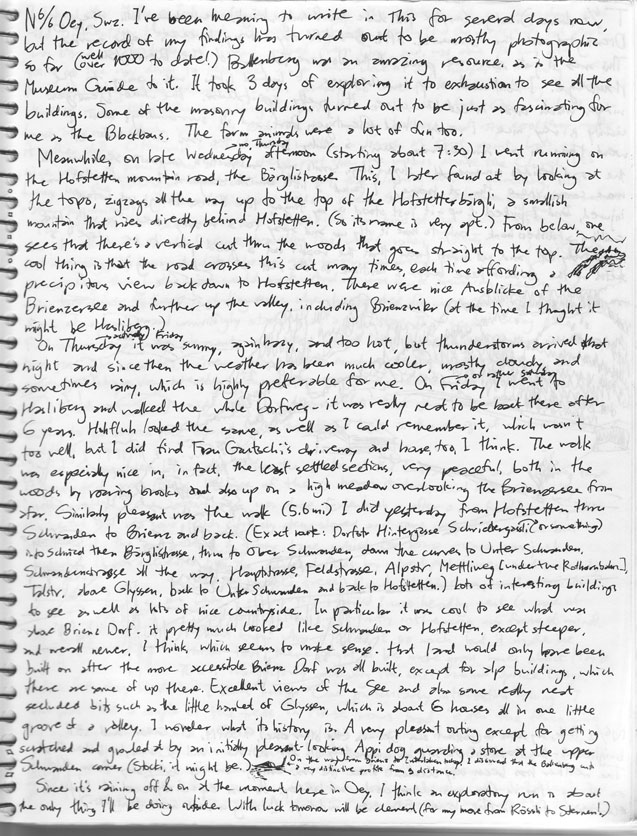 N6/6 Oey, Swz. I've been meaning to write in this for several days now,
but the record of my findings has turned out to be mostly photographic
so far (well over 1000 to date!) Ballenberg was an amazing resource, as is the
Museum Guide to it. It took 3 days of exploring it to exhaustion to see all the
buildings. Some of the masonry buildings turned out to be just as fascinating for
me as the Blockbaus. The farm animals were a lot of fun too.
Meanwhile, on late Wednesday no, Thursday afternoon (starting about 7:30) I went running on
the Hofstetten mountain road, the Bärglistrasse. This, I later found out by looking at
the topo, zigzags all the way up to the top of the Hofstetterbärgli, a smallish
mountain that rises directly behind Hofstetten. (So its name is very apt.) From below, one
sees that there's a vertical cut thru the woods that goes straight to the top. The
cool thing is that the road crosses this cut many times, each time affording a
precipitous view back down to Hofstetten. There were nice Ausblicke of the
Brienzersee and further up the valley, including Brienzwiler (at the time I thought it
might be Hasliberg.)
On Thursday (actually Friday) it was sunny, again hazy, and too hot, but thunderstorms arrived that
night and since then the weather has been much cooler, mostly cloudy, and
sometimes rainy, which is highly preferable for me. On Friday or rather Saturday I went to
Hasliberg and walked the whole Dorfweg - it was really neat to be back there after
6 years. Hohfluh looked the same, as well as I could remember it, which wasn't
too well, but I did find Frau Gautschi's driveway and house, too, I think. The walk
was especially nice in, in fact, the least settled sections, very peaceful, both in the
woods by roaring brooks and also up on a high meadow overlooking the Brienzersee from
afar. Similarly pleasant was the walk (5.6 mi) I did yesterday from Hofstetten thru
Schwanden to Brienz and back. (Exact route: Dorfstr Hintergasse (or something)
into Schried then Bärglistrasse, thru to Ober Schwanden, down the curves to Unter Schwanden,
Schwandenstrasse all the way, Hauptstrasse, Feldstrasse, Alpstr, Mettliweg [under the Rothornbahn],
Talstr. above Glyssen, back to Unter Schwanden and back to Hofstetten.) Lots of interesting buildings
to see as well as lots of nice countryside. In particular it was cool to see what was
above Brienz Dorf. it pretty much looked like Schwanden or Hofstetten, except steeper,
and overall newer, I think, which seems to make sense. that land would only have been
built on after the more accessible Brienz Dorf was all built, except for alp buildings, which
there are some of up there. Excellent views of the See and also some really neat
secluded bits such as the little hamlet of Glyssen, which is about 6 houses all in one little
groove of a valley. I wonder what its history is. A very pleasant outing except for getting
scratched and growled at by an initially pleasant-looking Appi dog guarding a store at the upper
Schwanden corner (Stocki, it might be.) On the way from Brienz to Interlaken today I observed that the
a very distinctive profile from a distance.
Since it's raining off & on at the moment here in Oey, I think an exploratory run is about
the only thing I'll be doing outside. With luck tomorrow will be clement (for my move from Rössli to Sternen!)